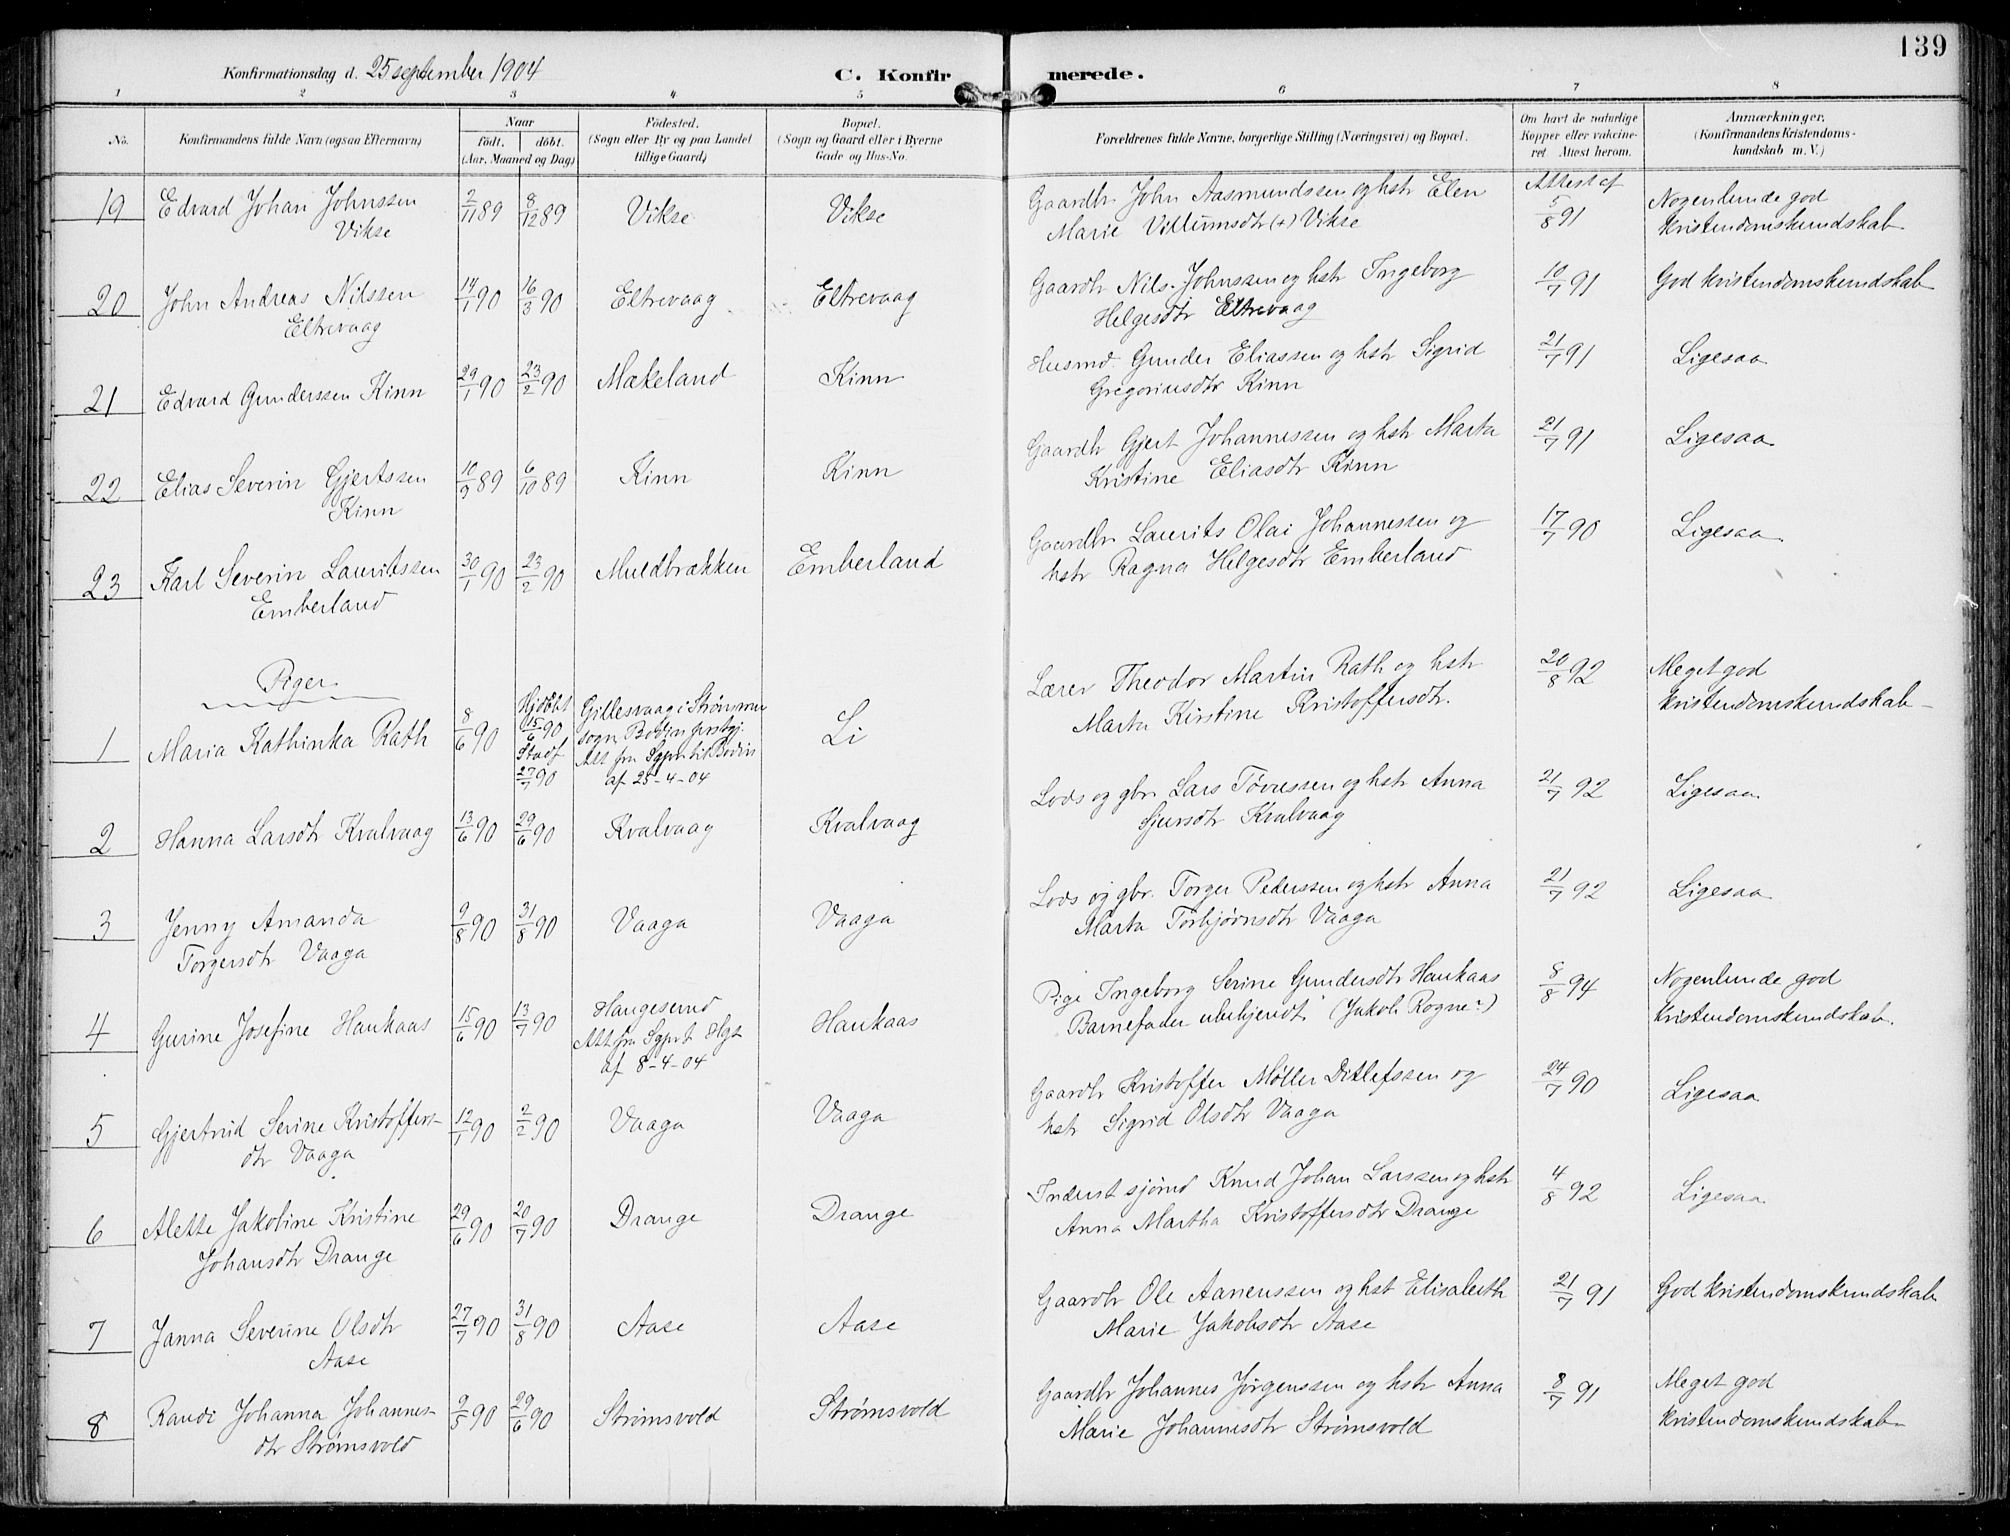 139
Konfirmationsdag d. 25 september 1904
C. Konfirmerede.
1 2 3 4 5 6 7 8
No. Konfirmandens fulde Navn (ogsaa Efternavn) Naar født. døbt. (Aar, Maaned og Dag) Fødested. (Sogn eller By og paa Landet tillige Gaard) Bopæl. (Sogn og Gaard eller i Byerne Gade og Hus-No. Forældrenes fulde Navne, borgerlige Stilling (Næringsvei) og Bopæl. Om havt de naturlige Kopper eller vakcineret. Attest herom. Anmærkninger. (Konfirmandens Kristendomskundskab m. V.)
19 Edvard Johan Johnssen 2/11 89 8/12 89 Vikse Vikse Gaardbr John Aasmundssen og hstr Elen Attest af Nogenlunde god
Vikse Marie Villumsdtr (+) Vikse 5/8 91 kristendomskundskab
20 John Andreas Nilssen 14/1 90 16/3 90 Eltrevaag Eltrevaag Gaardbr Nils Johnssen og hstr Ingeborg 10/7 91 God kristendomskundskab
Eltrevaag Helgesdtr Eltrevaag
21 Edvard Gunderssen Kinn 29/1 90 23/2 90 Mækeland Kinn Husmd. Gunder Eliassen og hstr Sigrid 21/7 91 Ligesaa
Gregoriusdtr Kinn
22 Elias Severin Gjertssen 10/9 89 6/10 89 Kinn Kinn Gaardbr Gjert Johannessen og hstr Marta 21/7 91 Ligesaa
Kinn Kristine Eliasdtr Kinn
23 Karl Severin Lauritssen 30/1 90 23/2 90 Muldbrækken Emberland Gaardbr Laurits Olai Johannessen og 17/7 90 Ligesaa
Emberland hstr Ragna Helgesdtr Emberland
Piger
1 Maria Kathinka Rath 8/6 90 Hjdøbt 15/6 90 Stadf 27/7 90 Gillesvaag i Strømmen sogn Bodin prstgj. Att fra Sgpr til Bodin af 25-4-04 Li Lærer Theodor Martin Rath og hstr 20/8 92 Meget god
Marta Kirstine Kristoffersdtr. kristendomskundskab
2 Hanna Larsdtr Kvalvaag 13/6 90 29/6 90 Kvalvaag Kvalvaag Lods og gbr Lars Tøvessen og hstr Anna 21/7 92 Ligesaa
Sjursdtr Kvalvaag
3 Jenny Amanda 9/8 90 31/8 90 Vaaga Vaaga Lods og gbr. Torger Pederssen og hstr Anna 21/7 92 Ligesaa
Torgersdtr Vaaga Marta Torbjørnsdtr Vaaga
4 Gurine Josefine Haukaas 15/6 90 13/7 90 Haugesund Att fra Sgprt Hgs af 8-4-04 Haukaas Pige Ingeborg Serine Gundersdtr Haukaas 8/8 94 Nogenlunde god
Barnefader ubekjendt (Jakob Rogne?) kristendomskundskab.
5 Gjertrud Serine Kristoffers- 12/1 90 2/2 90 Vaaga Vaaga Gaardbr Kristoffer Møller Ditlefssen og 24/7 90 Ligesaa
dtr Vaaga hstr Sigrid Olsdtr Vaaga
6 Alette Jakoline Kristine 29/6 90 20/7 90 Drange Drange Inderst sjømd Knud Johan Larssen og hstr 4/8 92 Ligesaa
Johansdtr Drange Anna Martha Kristoffersdtr Drange
7 Janna Severine Olsdtr 27/7 90 31/8 90 Aase Aase Gaardbr Ole Aanenssen og hst Elisabeth 21/7 91 God kristendomskundskab
Aase Marie Jakobsdtr Aase
8 Randi Johanna Johannes- 9/5 90 29/6 90 Strømsvold Strømsvold Gaardbr Johannes Jørgenssen og hstr Anna 8/7 91 Meget god
dtr Strømsvold Marie Johannesdtr Strømsvold kristendomskundskab